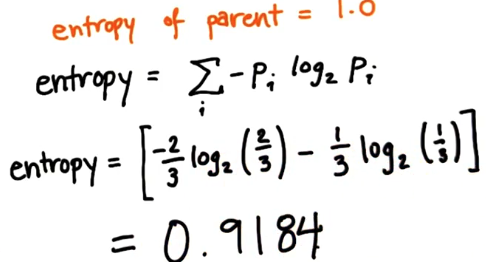 entropy of parent = 1.0
entropy = Σ_i -P_i log₂ P_i
entropy = [-2/3 log₂ (2/3) - 1/3 log₂ (1/3)]
= 0.9184